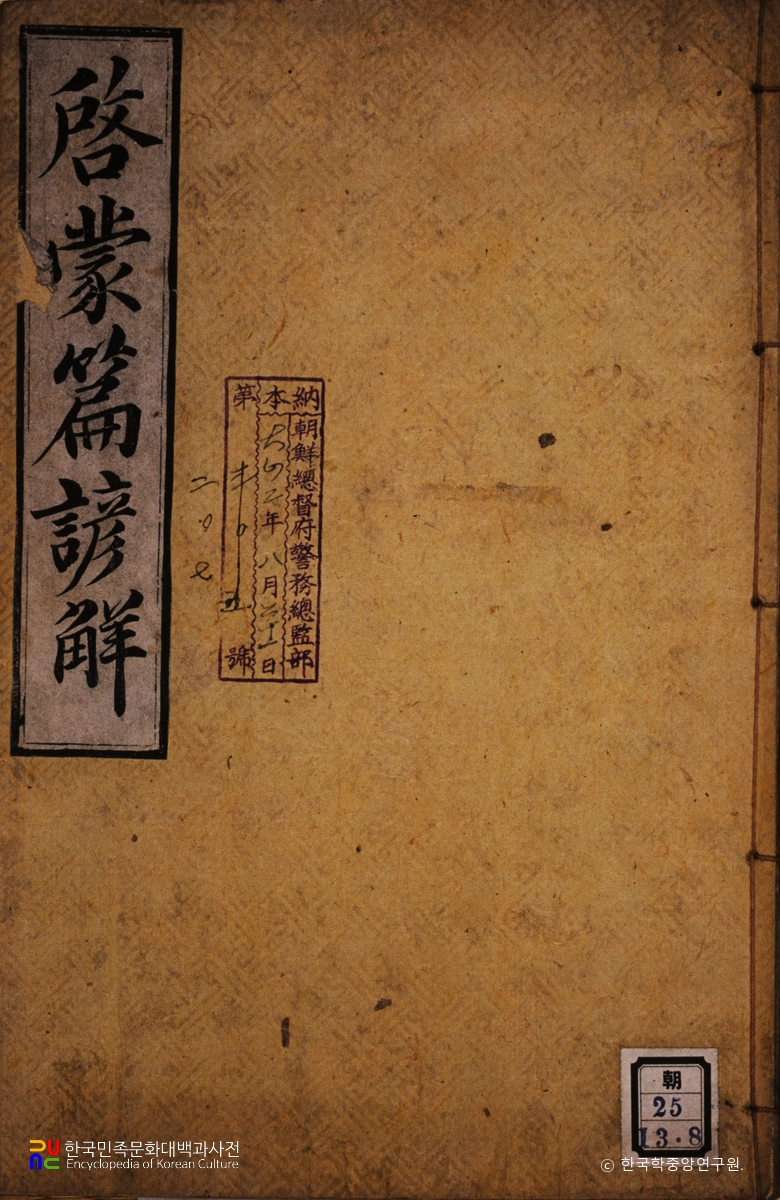 啓蒙篇諺解
納本
朝鮮總督府警務總監部
年八月 日
第 號
二〇七
朝
25
13.8
한국민족문화대백과사전
Encyclopedia of Korean Culture
© 한국학중앙연구원.